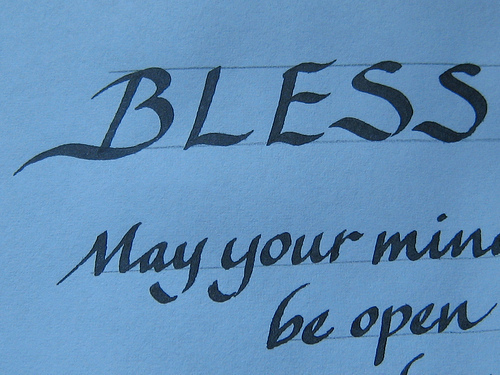 BLESS
May your min
be open